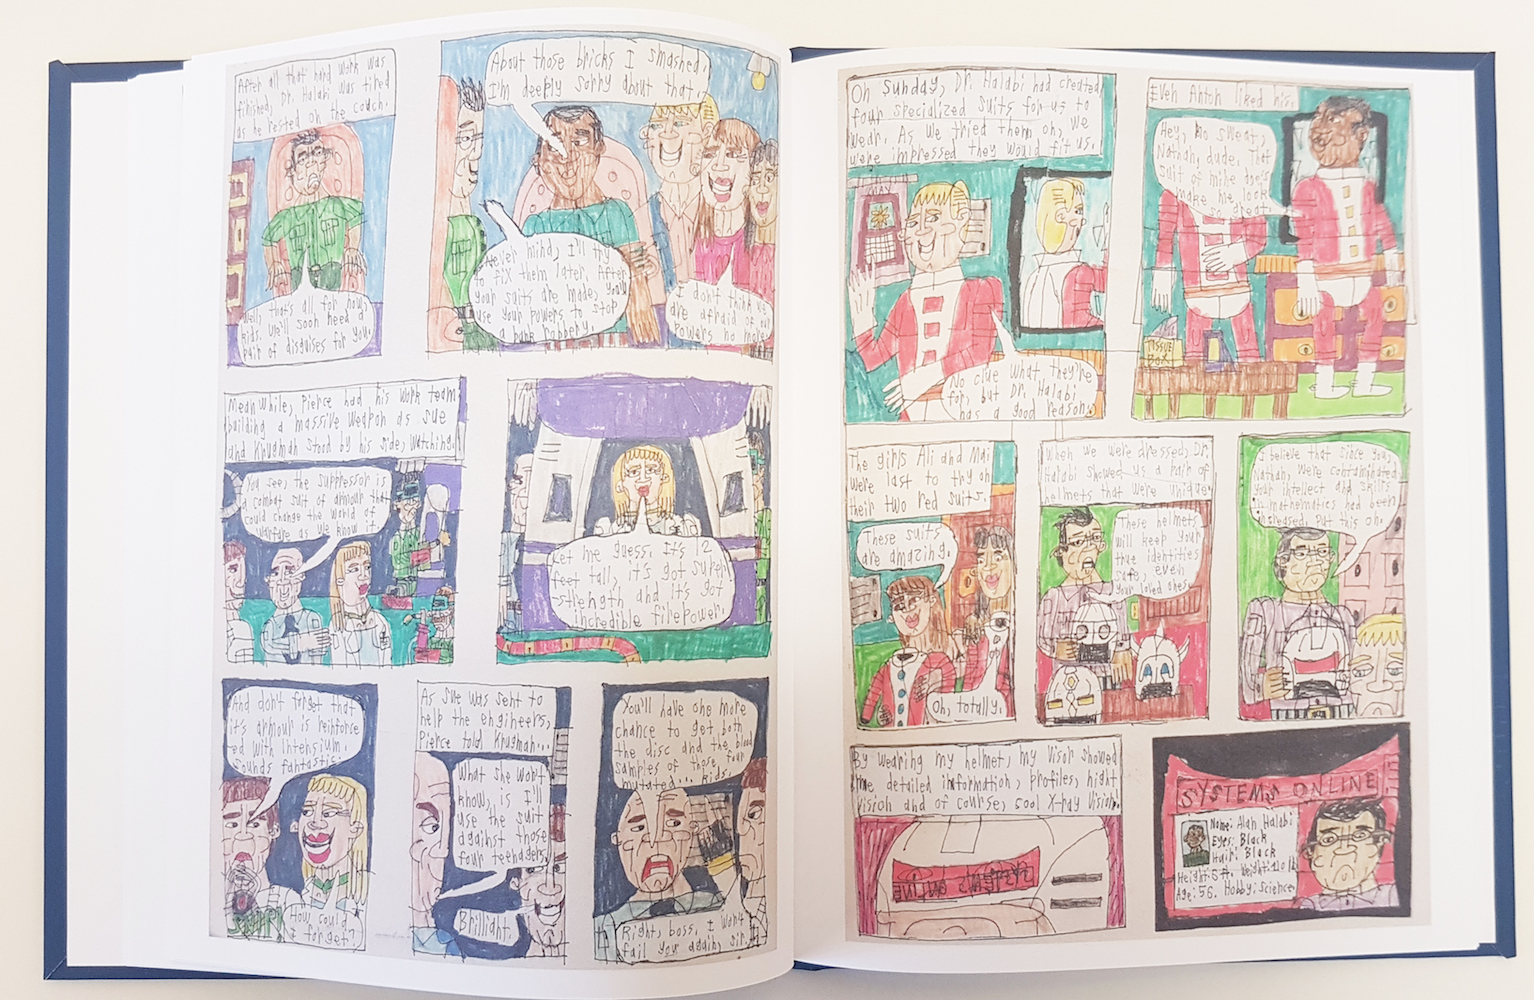 After all that hard work was
finished, Dr. Halabi was tired
as he rested on the couch.
Well that's all for now,
kids. We'll soon need a
pair of disguises for you.
About those bricks I smashed.
I'm deeply sorry about that.
Never mind, I'll try
to fix them later. After
your suits are made, you'll
use your powers to stop
a bank robbery.
I don't think we
are afraid of our
powers no more.
Meanwhile, Pierce had his work team
building a massive weapon as Sue
and Krugman stood by his side, watching.
You see, the suppressor is
combat suit of armour that
could change the world of
warfare as we know it.
Let me guess. It's 12
feet tall, it's got super
strength and it's got
incredible firepower.
And don't forget that
it's armour is reinforc
ed with Intensium.
Sounds fantastic.
How could
I forget?
As Sue was sent to
help the engineers,
Pierce told Krugman...
What she won't
know, is I'll
use the suit
against those
four teenagers.
Brilliant.
You'll have one more
chance to get both
the disc and the blood
samples of those four
mutated... kids.
Right, boss, I won't
fail you again, sir.
On Sunday, Dr. Halabi had created
four specialized suits for us to
wear. As we tried them on, we
were impressed they would fit us.
MAY
No clue what they're
for, but Dr. Halabi
has a good reason.
Even Anton liked his.
Hey, no sweat,
Nathan, dude. That
suit of mine does
make me look
great.
TISSUE
BOX
The girls Ali and Mai
were last to try on
their two red suits.
These suits
are amazing.
Oh, totally.
When we were dressed, Dr.
Halabi showed us a pair of
helmets that were
These helmets
will keep your
true identities
safe, even
your loved ones.
I believe that since you,
Nathan, were contaminated
your intellect and skills
in mathematics had been
increased. Put this on.
By wearing my helmet, my visor showed
me detailed information, profiles, night
vision and of course, cool X-ray vision.
SYSTEMS ONLINE
SYSTEMS ONLINE
Name: Alan Halabi
Eyes: Black
Hair: Black
Height: 6ft. Weight:
Age: 56. Hobby: Science